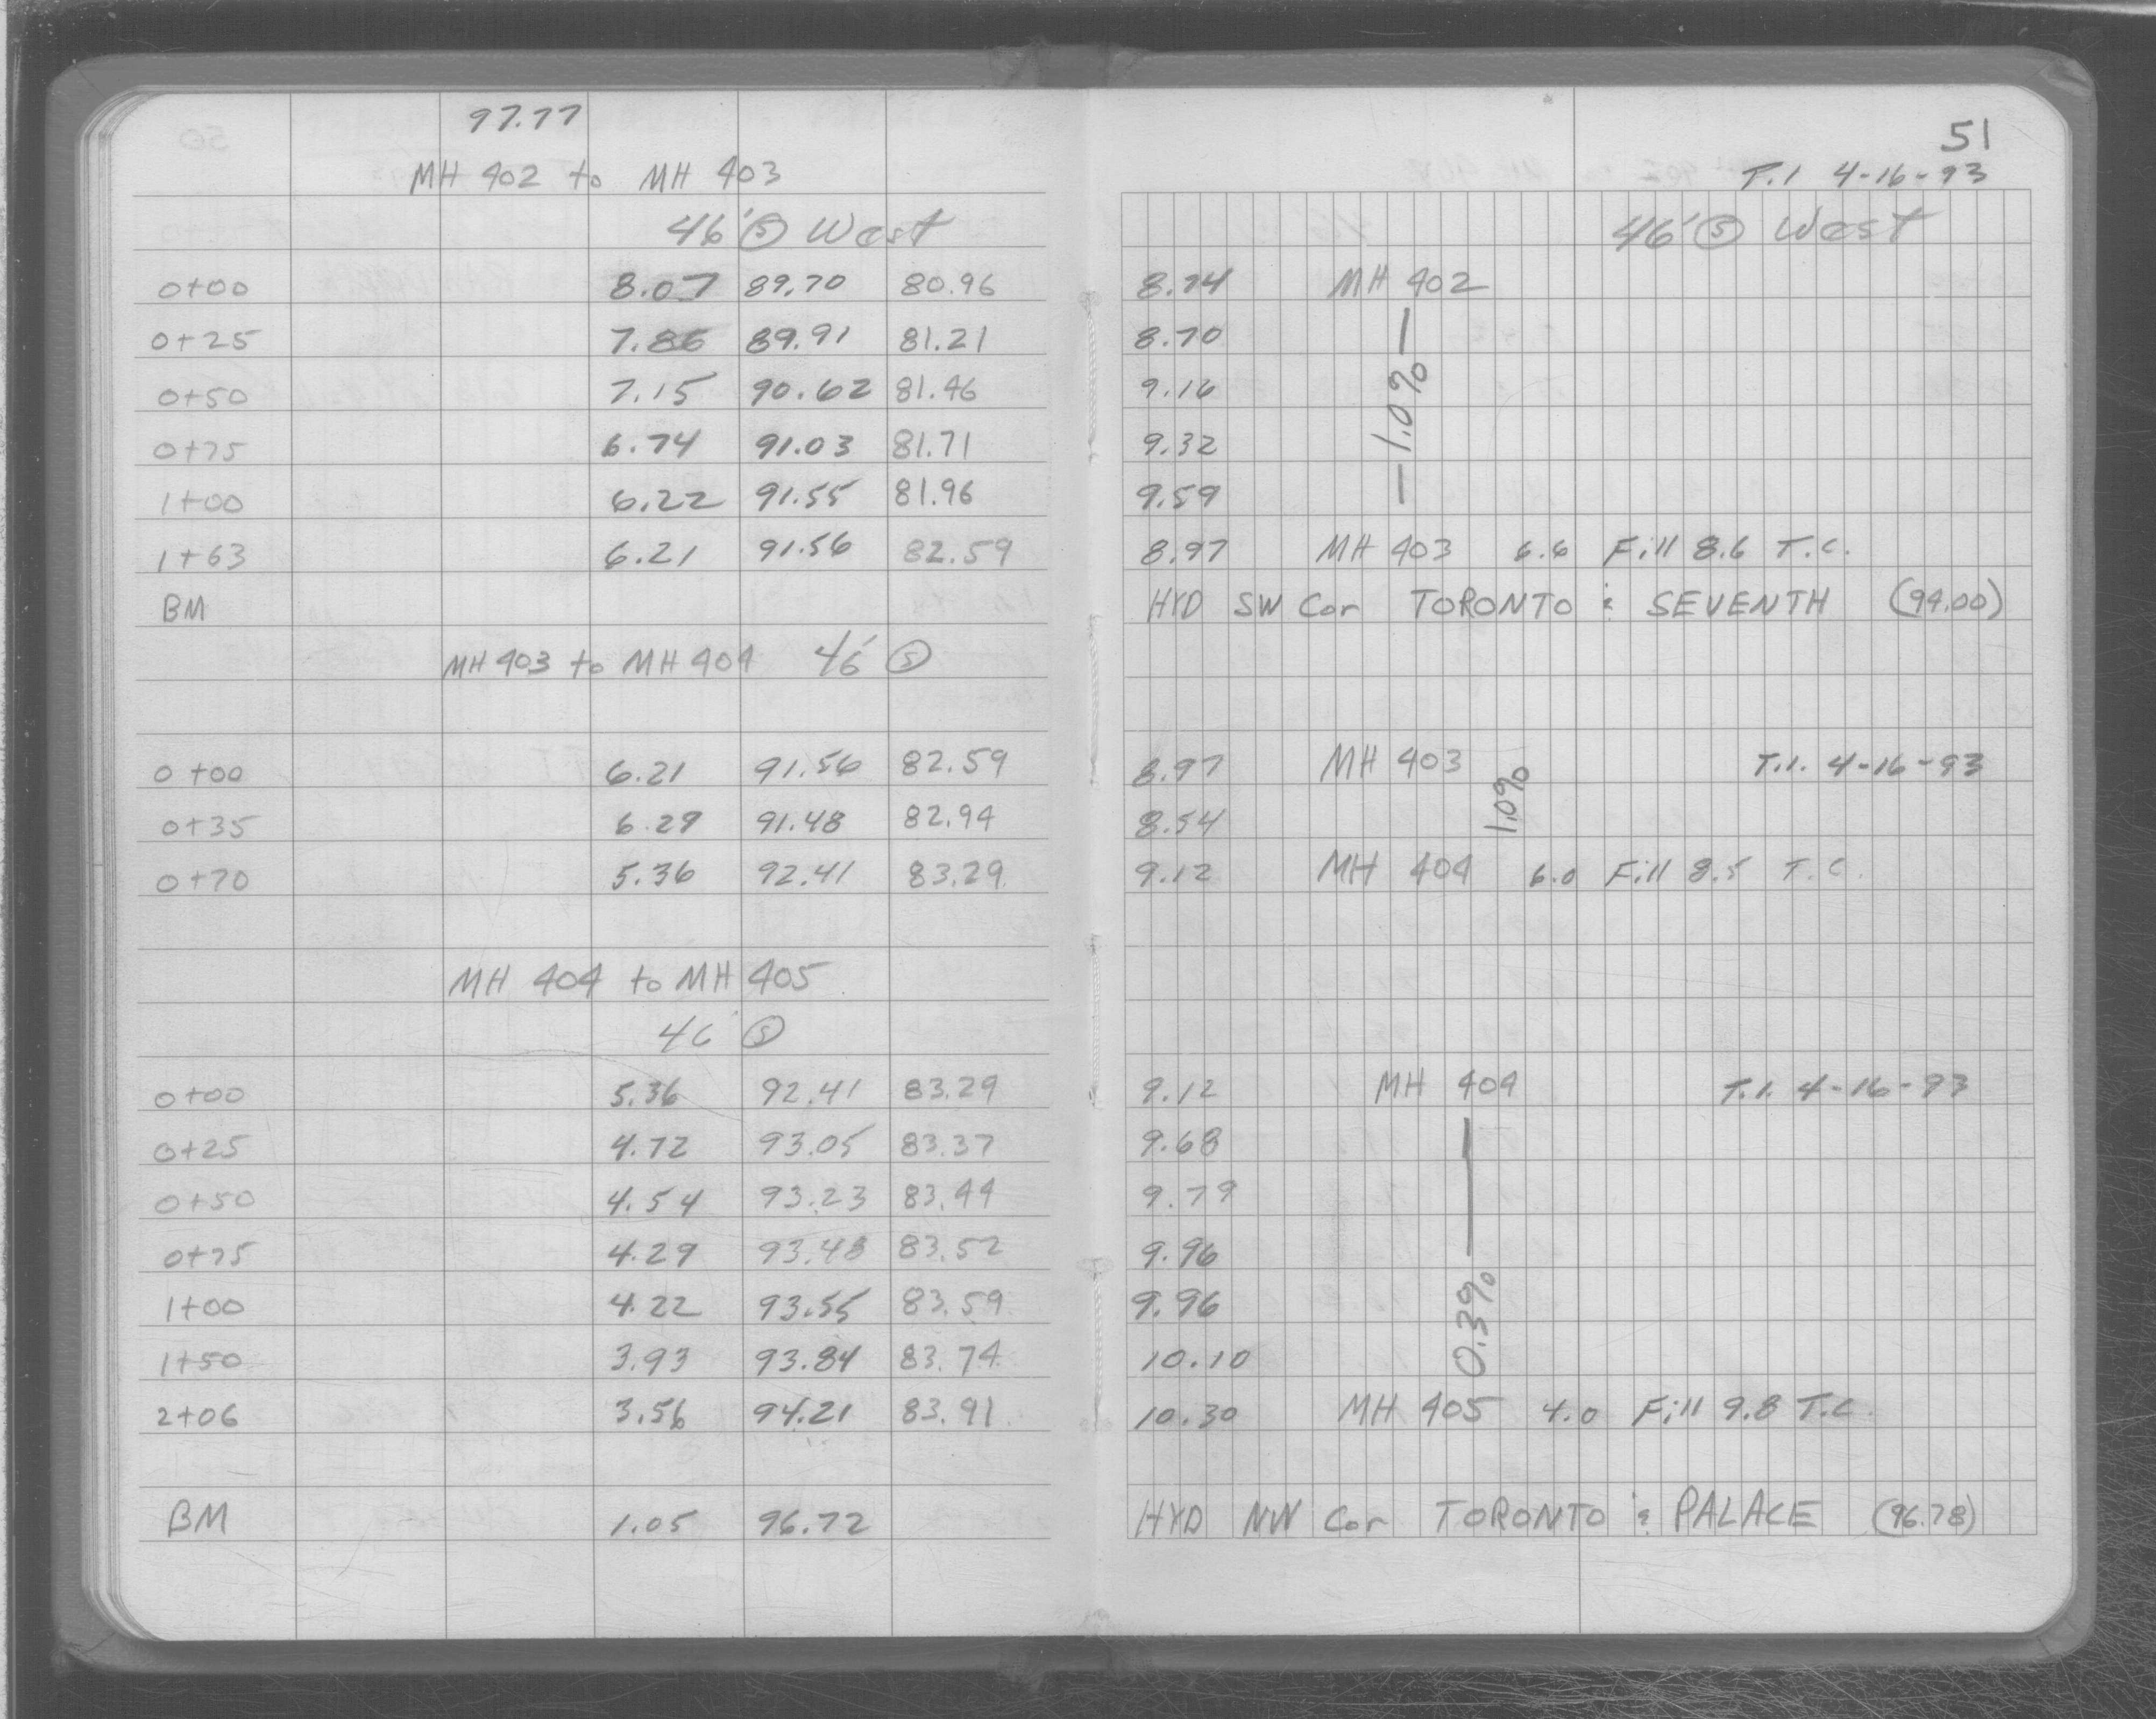 97.77
51
MH 402 to MH 403
T.I 4-16-93
46' Ⓢ West
46' Ⓢ West
0+00 8.07 89.70 80.96 8.74 MH 402
0+25 7.86 89.91 81.21 8.70
0+50 7.15 90.62 81.46 9.16
— 1.0% —
0+75 6.74 91.03 81.71 9.32
1+00 6.22 91.55 81.96 9.59
1+63 6.21 91.56 82.59 8.97 MH 403 6.6 Fill 8.6 T.C.
BM HYD SW Cor TORONTO & SEVENTH (94.00)
MH 403 to MH 404 46' Ⓢ
0+00 6.21 91.56 82.59 8.97 MH 403 T.I. 4-16-93
1.0%
0+35 6.29 91.48 82.94 8.54
0+70 5.36 92.41 83.29 9.12 MH 404 6.0 Fill 8.5 T.C.
MH 404 to MH 405
46' Ⓢ
0+00 5.36 92.41 83.29 9.12 MH 404 T.I. 4-16-93
0+25 4.72 93.05 83.37 9.68
0+50 4.54 93.23 83.44 9.79
0+75 4.29 93.48 83.52 9.96
1+00 4.22 93.55 83.59 9.96
0.3% —
1+50 3.93 93.84 83.74 10.10
2+06 3.56 94.21 83.91 10.30 MH 405 4.0 Fill 9.8 T.C.
BM 1.05 96.72 HYD NW Cor TORONTO & PALACE (96.78)